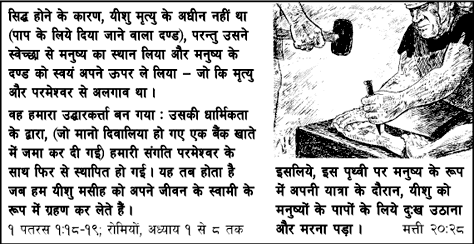 सिद्ध होने के कारण, यीशु मृत्यु के अधीन नहीं था
(पाप के लिये दिया जाने वाला दण्ड), परन्तु उसने
स्वेच्छा से मनुष्य का स्थान लिया और मनुष्य के
दण्ड को स्वयं अपने ऊपर ले लिया – जो कि मृत्यु
और परमेश्वर से अलगाव था ।
वह हमारा उद्धारकर्त्ता बन गया : उसकी धार्मिकता
के द्वारा, (जो मानो दिवालिया हो गए एक बैंक खाते
में जमा कर दी गई) हमारी संगति परमेश्वर के
साथ फिर से स्थापित हो गई । यह तब होता है
जब हम यीशु मसीह को अपने जीवन के स्वामी के
रूप में ग्रहण कर लेते हैं ।
१ पतरस १:१८-१९; रोमियों, अध्याय १ से ८ तक
इसलिये, इस पृथ्वी पर मनुष्य के रूप
में अपनी यात्रा के दौरान, यीशु को
मनुष्यों के पापों के लिये दुःख उठाना
और मरना पड़ा । मत्ती २०:२८